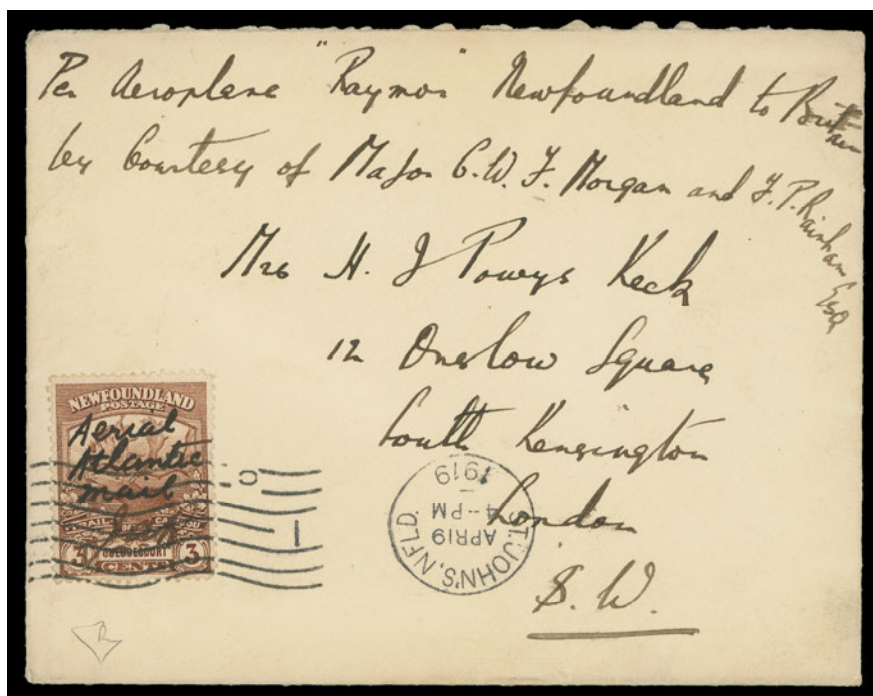 Per Aeroplane "Raymor" Newfoundland to Britain
by Courtesy of Major C.W.F. Morgan and F.P. Rainham Esq
Mrs H. J Powys Keck
12 Onslow Square
South Kensington
London
S.W.
NEWFOUNDLAND
POSTAGE
Aerial
Atlantic
mail
J.A.R.
GUEUDECOURT
3 CENTS 3
1919
4-PM
APR19
ST. JOHN'S, NFLD.